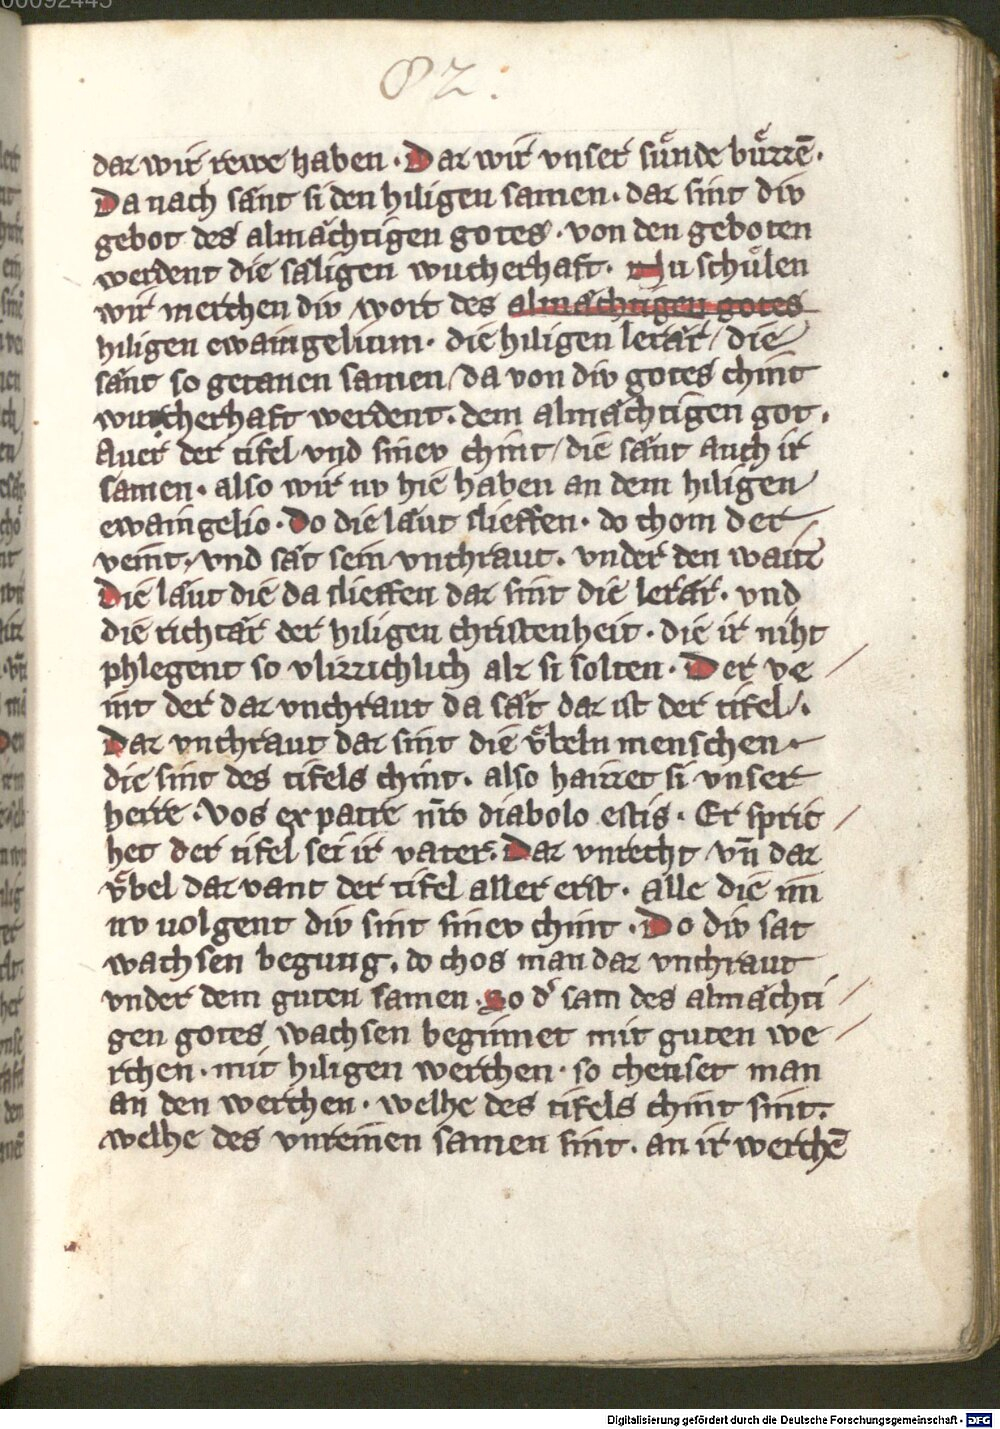 00092445
82.
daz wir rewe haben · Daz wir vnser suͤnde buͤzzē ·
Da nach saͤnt si den hiligen samen · daz sint div
gebot des almaͤchtigen gotes · von den geboten
werdent die saͤligen wucherhaft · Nu schuͤlen
wir merchen div wort des almaͤchtigen gotes
hiligen ewaingelium · die hiligen leraͤr / die
saͤnt so getanen samen / da von div gotes chint
wucherhaft werdent · dem almaͤchtigen got ·
Auer der tifel vnd sinev chint / die saͤnt auch ir
samen · also wir nv hie haben an dem hiligen
ewaingelio · Do die laͤut slieffen · do chom der
veint / vnd saͤt sein vnchraut · vnder den waitz
Die laͤut die da slieffen daz sint die leraͤr · vnd
die richtaͤr der hiligen christenheit · die ir niht
phlegent so vlizzichlich alz si solten · Der ve
int der daz vnchraut da saͤt daz ist der tifel / ·
Daz vnchraut daz sint die vͤbeln menschen ·
die sint des tifels chint · also haizzet si vnser
herre · Vos ex patre nr̄o diabolo estis · Er spric
het der tifel sei ir vater · Daz vnrecht vn̄ daz
vͤbel daz vant der tifel aller erst · alle die im
nv uolgent div sint sinev chint · Do div sat
wachsen begung · do chos man daz vnchraut
vnder dem guten samen · So d' sam des almaͤchti
gen gotes wachsen beginnet mit guten we
rchen · mit hiligen werchen · so cheuset man
an den werchen · welhe des tifels chint sint ·
welhe des vnreinen samen sint · an ir werchē
Digitalisierung gefördert durch die Deutsche Forschungsgemeinschaft · DFG